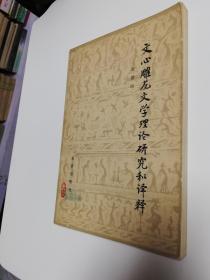 文心雕龙文学理论研究和译释